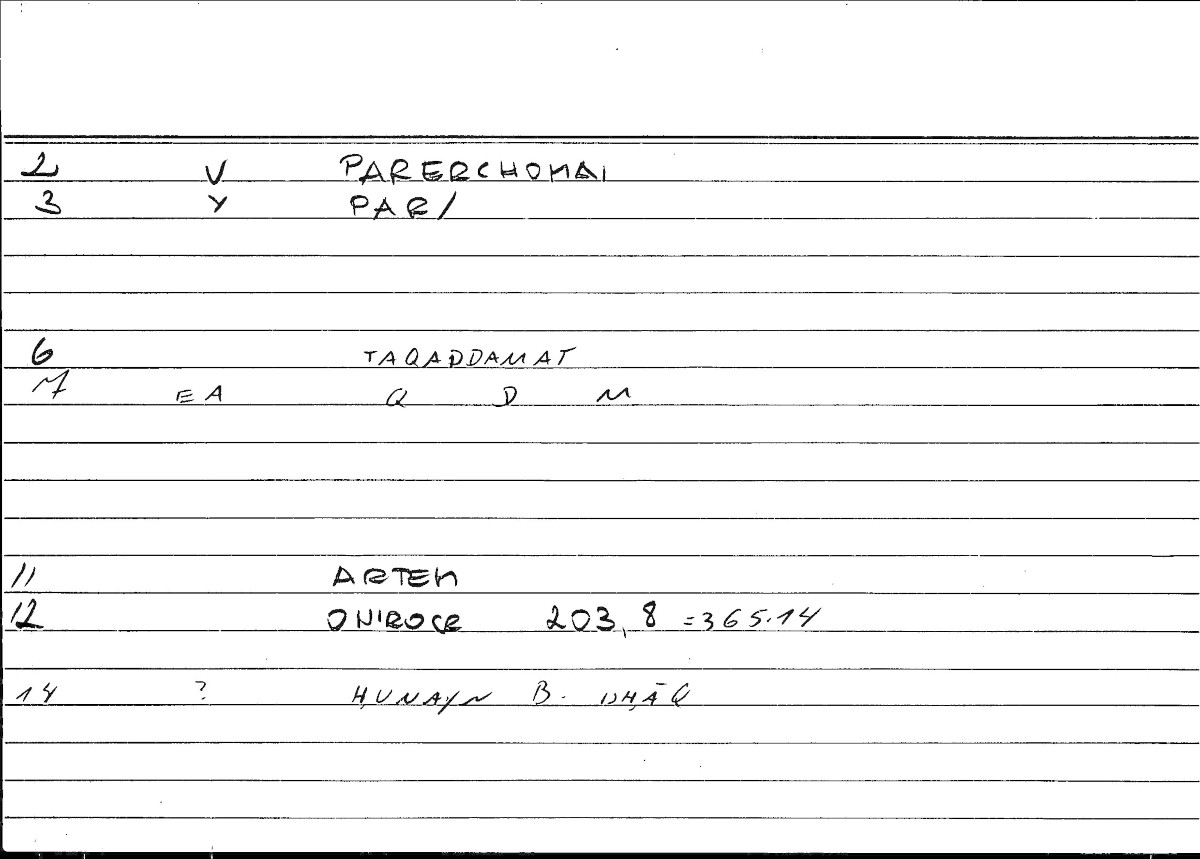 2 V PARERCHOMAI
3 Y PAR/
6 TAQADDAMAT
7 EA Q D M
11 ARTEM
12 ONIROCR 203,8 =365.14
14 ? ḤUNAYN B. ISḤĀQ